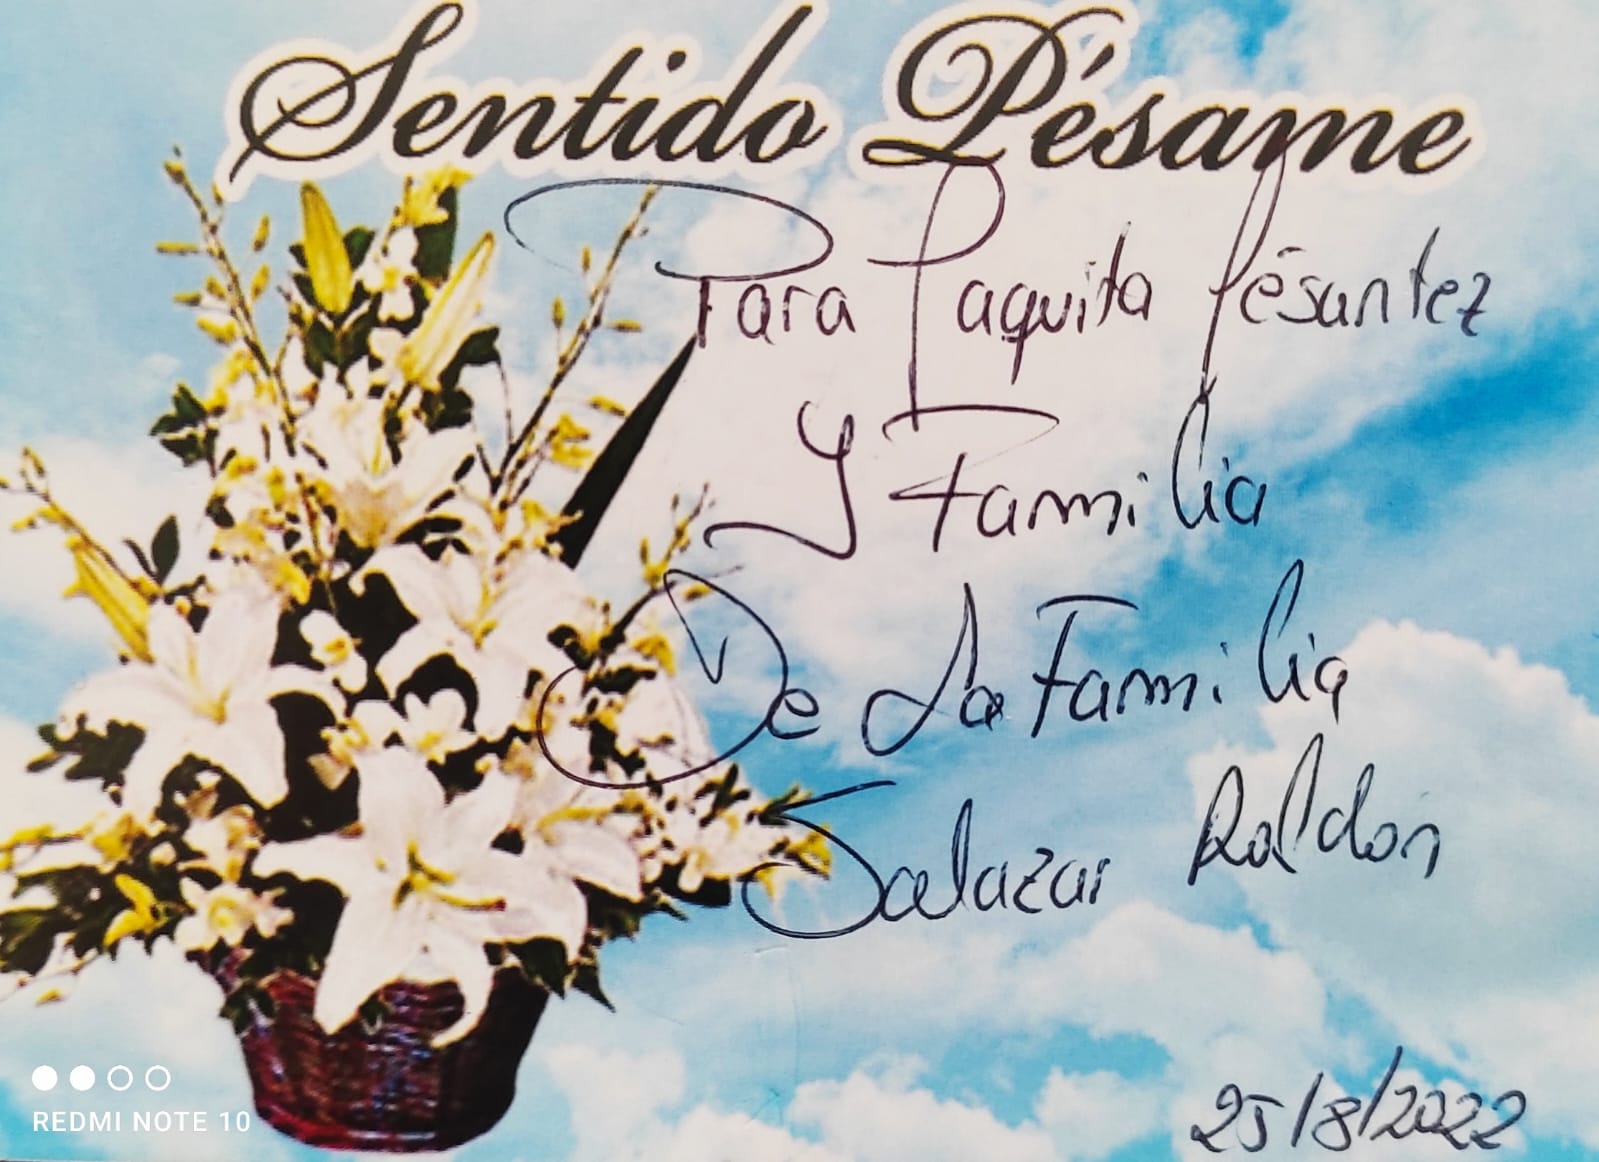 Sentido Pésame
Para Paquita Pésantez
Y Familia
De La Familia
Salazar Roldán
25/8/2022
REDMI NOTE 10